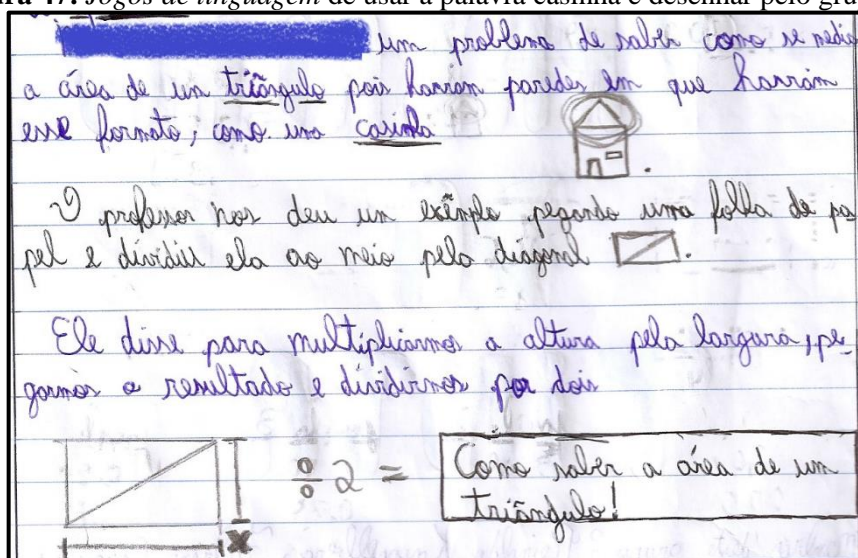 47: Jogos de linguagem de usar a palavra casinha e desenhar pelo gru
um problema de saber como se media
a área de um triângulo pois haviam paredes em que haviam
esse formato, como uma casinha
O professor nos deu um exêmplo pegando uma folha de pa
pel e dividiu ela ao meio pela diagonal
Ele disse para multiplicarmos a altura pela largura, pe
garmos o resultado e dividirmos por dois
÷ 2 = Como saber a área de um
triângulo!
x